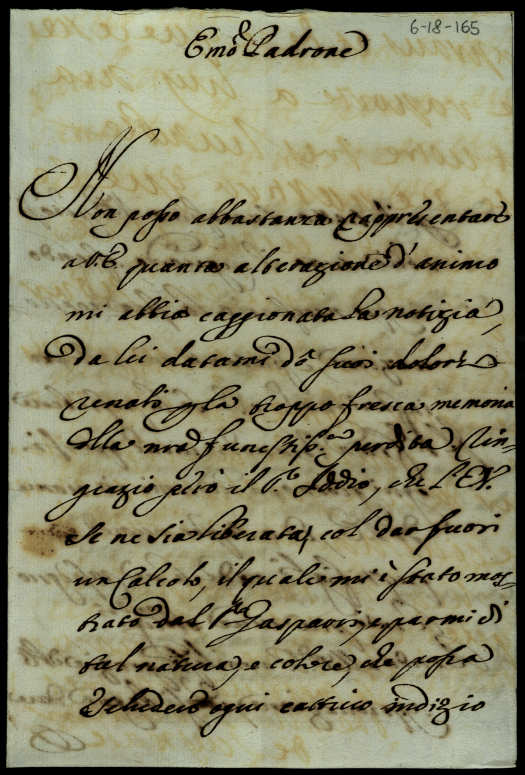 6-18-165
Emo Padrone
Non posso abbastanza rappresentare
a V.E. quanta alterazione d'animo
mi abbia caggionata la notizia,
da lei datami de suoi dolori
renali p la troppo fresca memoria
della nra funestissa perdita. Rin-
grazio però il Sre Iddio, che l'E.V.
se ne sia liberata, col dar fuori
un Calcolo, il quale mi è stato mos-
trato dal Gaspari, e parmi di
tal natura, e colore, che possa
escludere ogni cattivo indizio